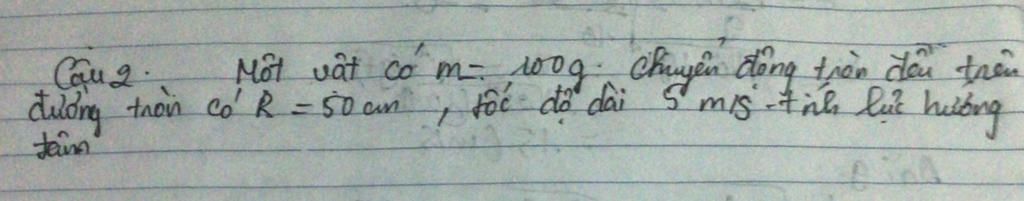 Câu 2. Một vật có m = 100g. chuyển động tròn đều trên
đường tròn có R = 50 cm, tốc độ dài 5 m/s. tính lực hướng
tâm